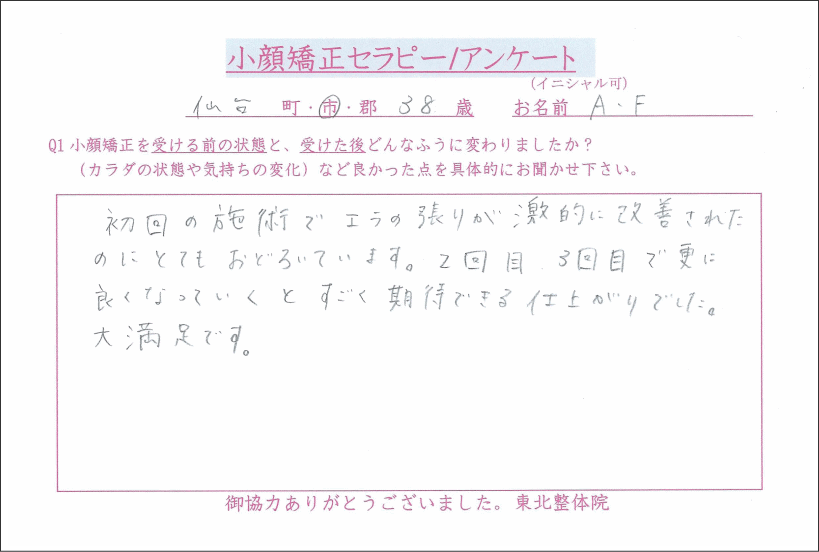 小顔矯正セラピー/アンケート
(イニシャル可)
仙台 町・市・郡 38 歳 お名前 A・F
Q1 小顔矯正を受ける前の状態と、受けた後どんなふうに変わりましたか？
（カラダの状態や気持ちの変化）など良かった点を具体的にお聞かせ下さい。
初回の施術でエラの張りが激的に改善された
のにとてもおどろいています。2回目、3回目で更に
良くなっていくとすごく期待できる仕上がりでした。
大満足です。
御協力ありがとうございました。東北整体院